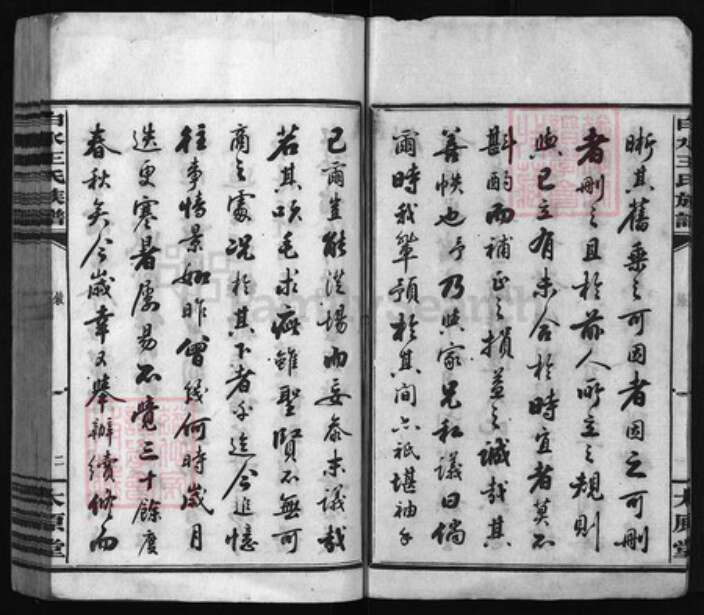 白水王氏族譜
晰其舊乘之可因者因之可刪
者刪之且於前人所立之規則
與已立有未合於時宜者莫不
斟酌而補正之損益之誠哉其
善帙也予乃與家兄私議曰倘
爾時我輩預於其間亦祇堪袖手
已爾豈能從場而妄參末議哉
若其吹毛求疵雖聖賢不無可
商之處況於其下者乎迄今追憶
往事情景如昨曾幾何時歲月
迭更寒暑屢易不覺三十餘度
春秋矣今歲幸又舉辦續修而
白水王氏族譜
一
二
太原堂
太原堂
FamilySearch